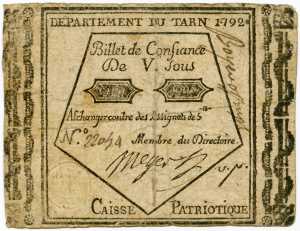 DEPARTEMENT DU TARN 1792
Billet de Confiance
De V. Sous
A échanger contre des Assignats de 5
N.° 22054
Membre du Directoire.
CAISSE PATRIOTIQUE